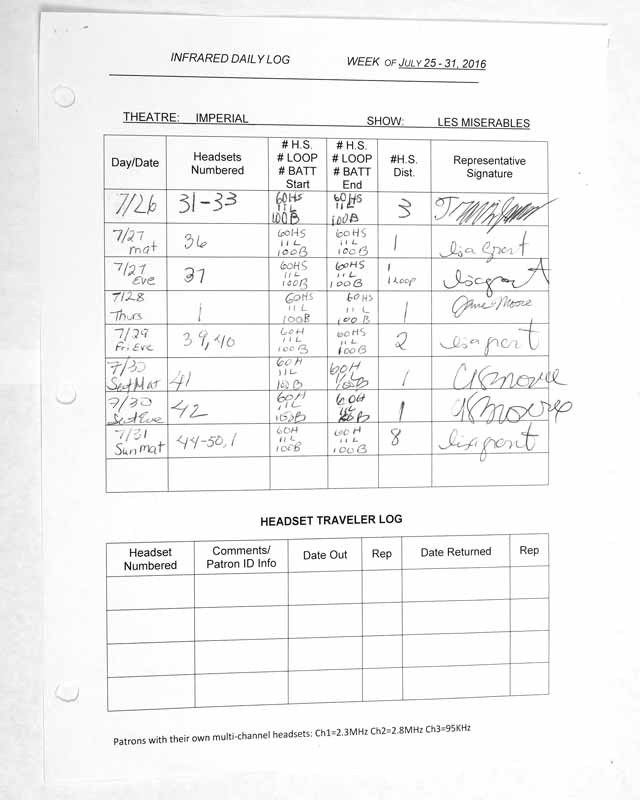 INFRARED DAILY LOG WEEK OF JULY 25 - 31, 2016
THEATRE: IMPERIAL SHOW: LES MISERABLES
Day/Date Headsets Numbered # H.S. # LOOP # BATT Start # H.S. # LOOP # BATT End #H.S. Dist. Representative Signature
7/26 31-33 60HS 11L 100B 60HS 11L 100B 3
7/27 mat 36 60HS 11L 100B 60HS 11L 100B 1
7/27 Eve 37 60HS 11L 100B 60HS 11L 100B 1 1 Loop
7/28 Thurs 1 60HS 11L 100B 60HS 11L 100B 1 Jane Moore
7/29 Fri Eve 39,40 60H 11L 100B 60HS 11L 100B 2
7/30 Sat Mat 41 60H 11L 100B 60H 11L 100B 1
7/30 Sat Eve 42 60H 11L 100B 60H 11L 100B 1
7/31 Sun mat 44-50,1 60H 11L 100B 60H 11L 100B 8
HEADSET TRAVELER LOG
Headset Numbered Comments/ Patron ID Info Date Out Rep Date Returned Rep
Patrons with their own multi-channel headsets: Ch1=2.3MHz Ch2=2.8MHz Ch3=95KHz